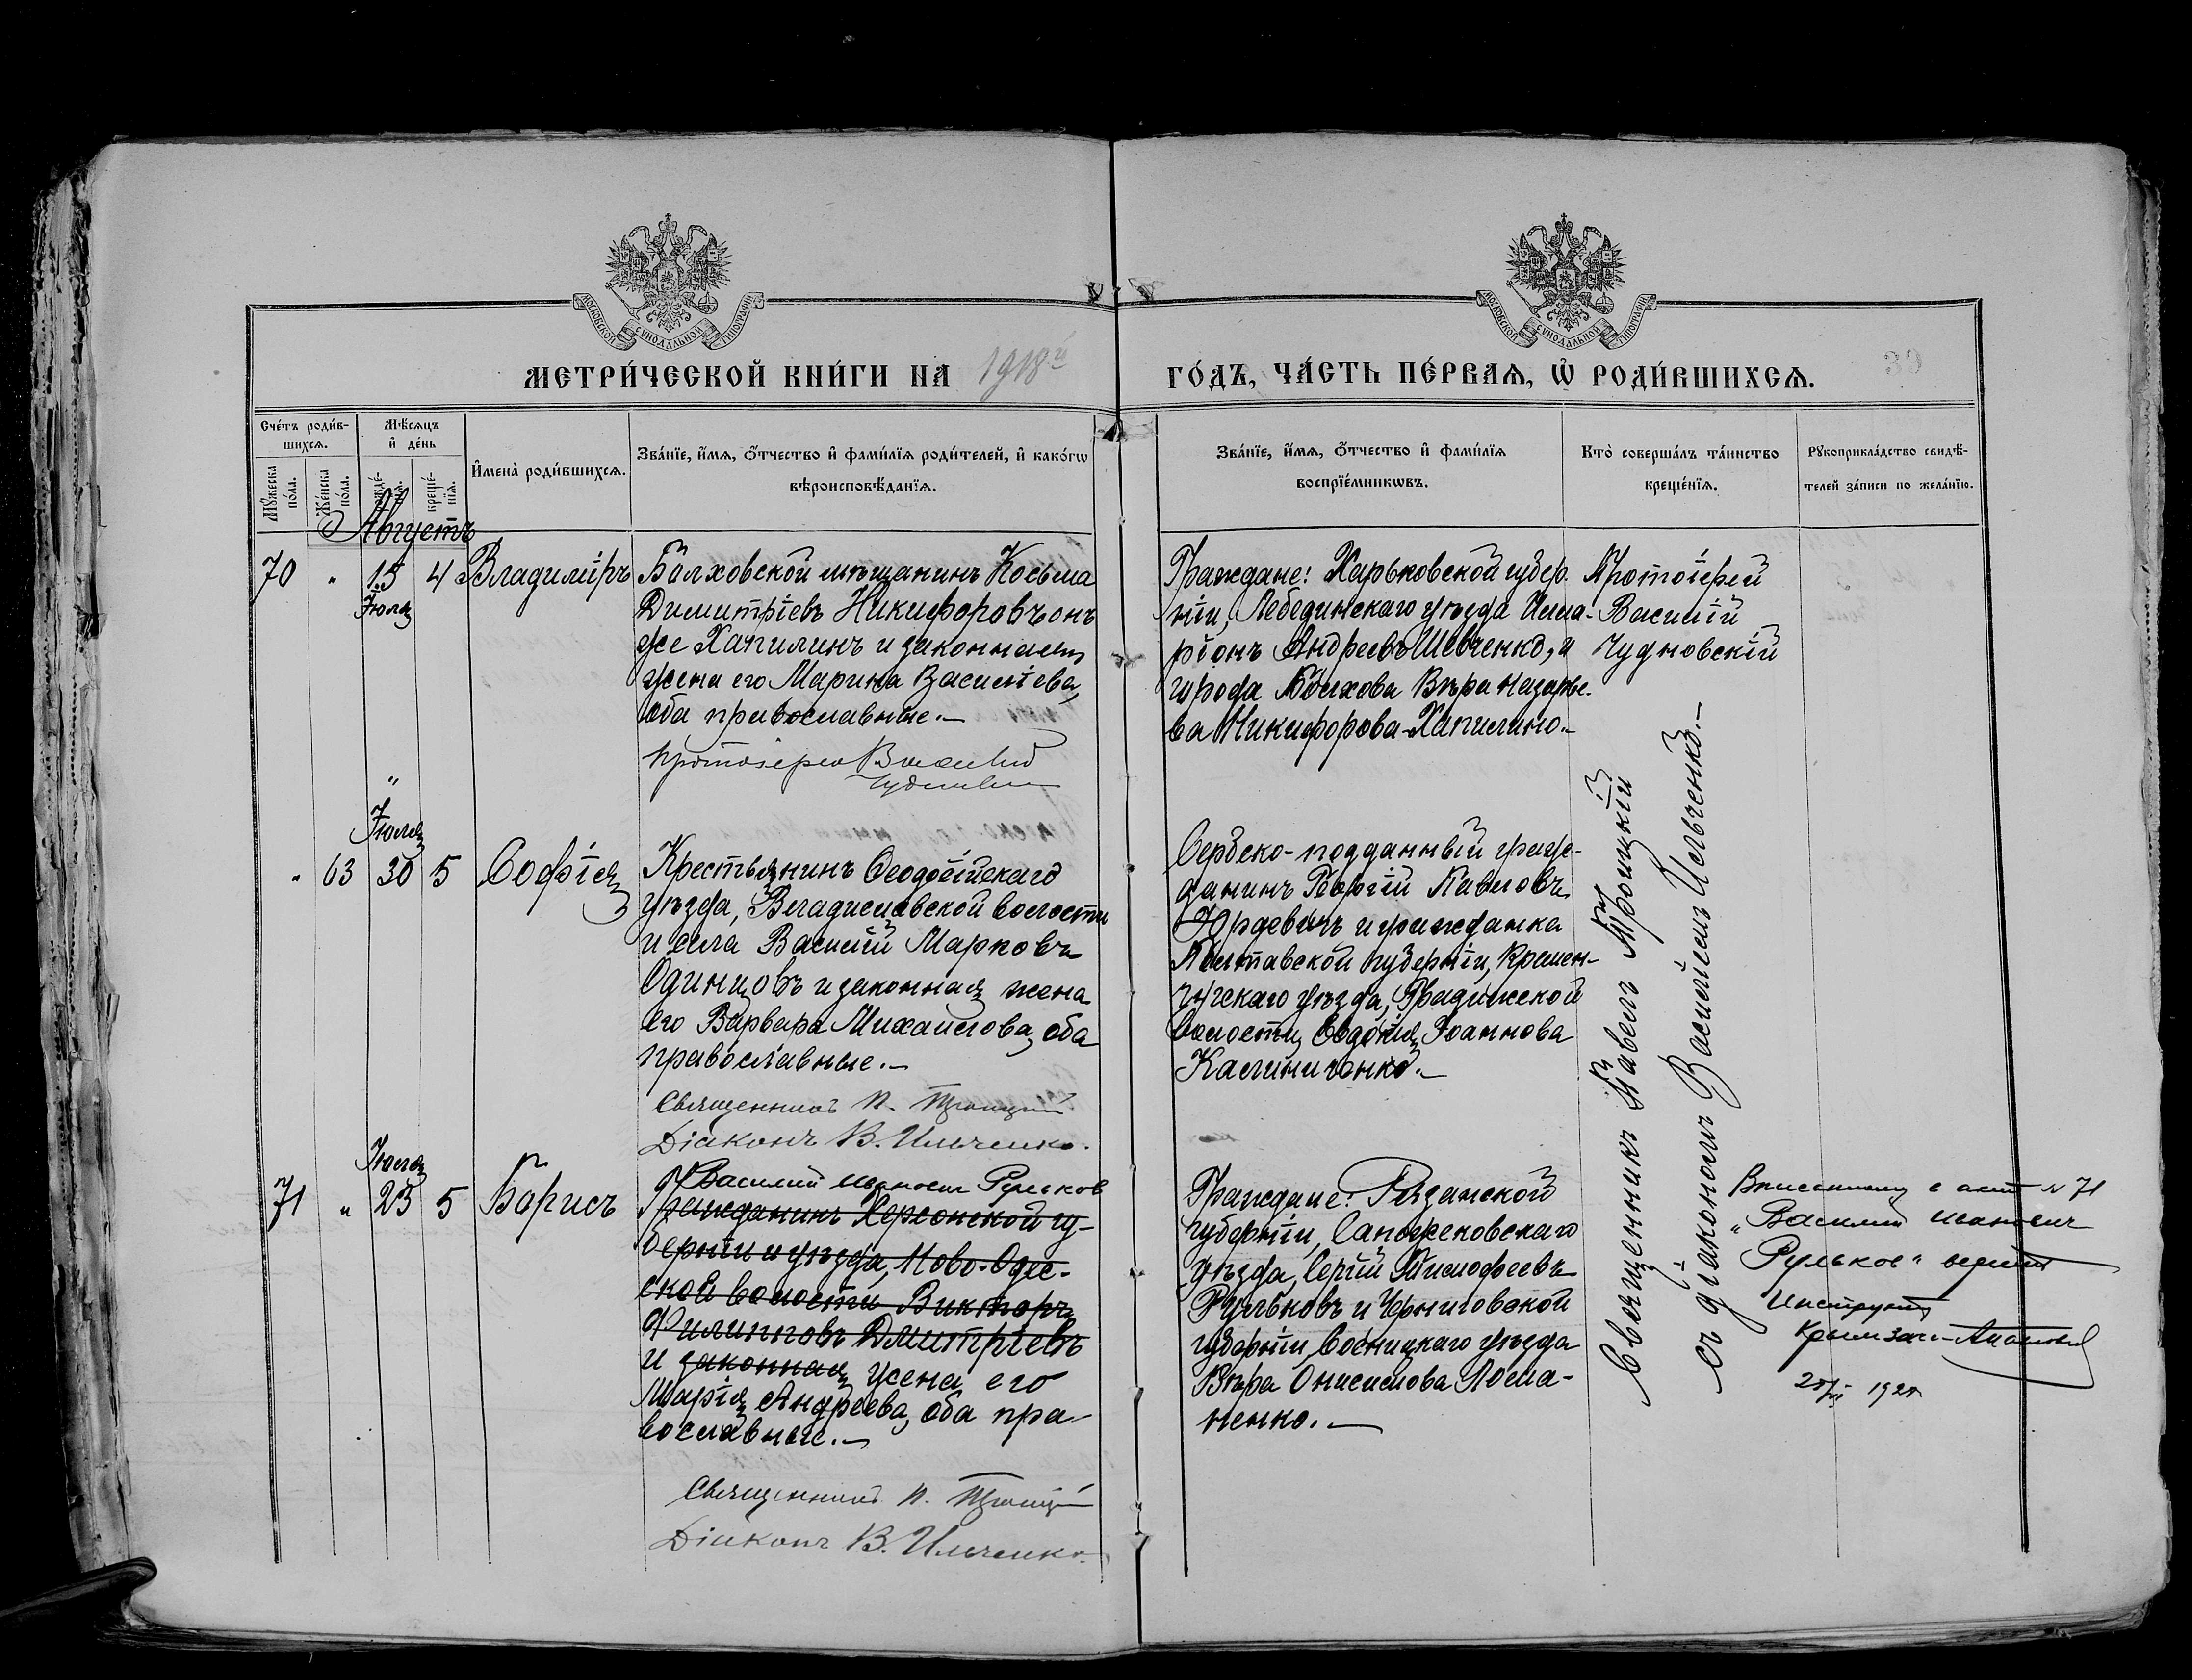 МОСКОВСКОЙ СУНОДАЛЬНОЙ ТИПОГРАФІИ
МОСКОВСКОЙ СУНОДАЛЬНОЙ ТИПОГРАФІИ
МЕТРИ́ЧЕСКОЙ КНИ́ГИ НА 1918й ГО́ДЪ, ЧА́СТЬ ПЕ́РВАѦ, Ѡ҆ РОДИ́ВШИХСѦ.
39
Сче́тъ роди́в-
шихсѧ.
Мѣ́сѧцъ
и҆ де́нь
И҆мена̀ роди́вшихсѧ.
Зва́нїе, и҆́мѧ, ѻ҆́тчество и҆ фами́лїѧ роди́телей, и҆ како́гѡ
вѣроисповѣ́данїѧ.
Зва́нїе, и҆́мѧ, ѻ҆́тчество и҆ фами́лїѧ
воспрїе́мникѡвъ.
Кто̀ соверша́лъ та́инство
креще́нїѧ.
Рꙋкоприкла́дство свидѣ́-
телей за́писи по жела́нїю.
Мꙋ́жеска
по́ла.
Же́нска
по́ла.
креще́-
нїѧ.
Августъ
70 " 15 4 Владиміръ
Іюля
Болховской мѣщанинъ Косьма
Димитріевъ Никифоровъ онъ
же Хапилинъ и законная
жена его Марина Васильева,
оба православные.—
Протоіерей Василій
Чудновскій
Граждане: Харьковской губер-
ніи, Лебединскаго уѣзда Илла-
ріонъ Андреевъ Шевченко, и
города Болхова Вѣра Назарье-
ва Никифорова-Хапилина.—
Протоіерей
Василій
Чудновскій
Іюля
" 63 30 5 Софія
Крестьянинъ Ѳеодосійскаго
уѣзда, Владиславской волости
и села Василій Марковъ
Одинцовъ и законная жена
его Варвара Михайлова, оба
православные.—
Священникъ П. Троицкій
Діаконъ В. Ильченко.
Сербско-подданный граж-
данинъ Георгій Павловъ
Юрдевичъ и гражданка
Полтавской губерніи, Кремен-
чугскаго уѣзда, Градижской
волости, Евдокія Іоаннова
Калиниченко.—
Священникъ Павелъ Троицкій
съ діакономъ Василіемъ Ильченко.—
Іюля
71 " 23 5 Борисъ
Василий Иванович Рульков
Гражданинъ Херсонской гу-
берніи и уѣзда, Ново-Одес-
ской волости Викторъ
Филипповъ Дмитріевъ
и законная жена его
Марія Андреева, оба пра-
вославные.—
Священникъ П. Троицкій
Діаконъ В. Ильченко.
Граждане: Рязанской
губерніи, Сапожковскаго
уѣзда, Сергій Тимофеевъ
Рульковъ и Черниговской
губерніи, Сосницкаго уѣзда
Вѣра Онисимова Лома-
ненко.—
Вписанному в акт № 71
"Василий Иванович
Рульков" верить
Инструктор